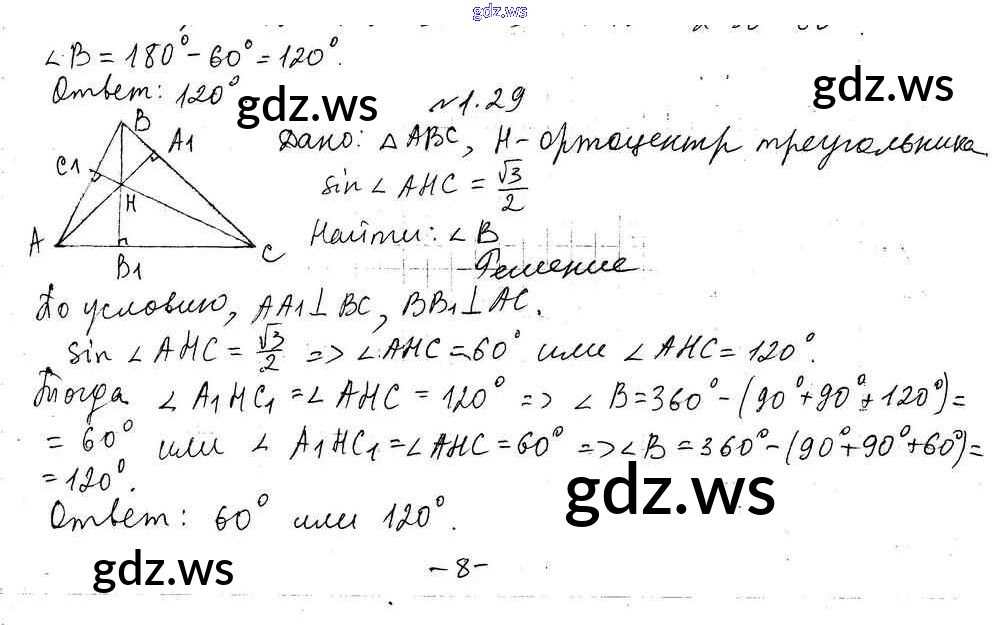 gdz.ws
∠B = 180° - 60° = 120°.
Ответ: 120°
gdz.ws
gdz.ws
№1.29
B
A1
C1
H
A
B1
C
Дано: △ABC, H - ортоцентр треугольника
sin∠AHC = √3/2
Найти: ∠B
Решение
По условию, AA1⊥BC, BB1⊥AC.
sin∠AHC = √3/2 => ∠AHC = 60° или ∠AHC = 120°.
Тогда ∠A1HC1 = ∠AHC = 120° => ∠B = 360° - (90° + 90° + 120°) =
= 60° или ∠A1HC1 = ∠AHC = 60° => ∠B = 360° - (90° + 90° + 60°) =
= 120°.
gdz.ws
Ответ: 60° или 120°.
gdz.ws
- 8 -